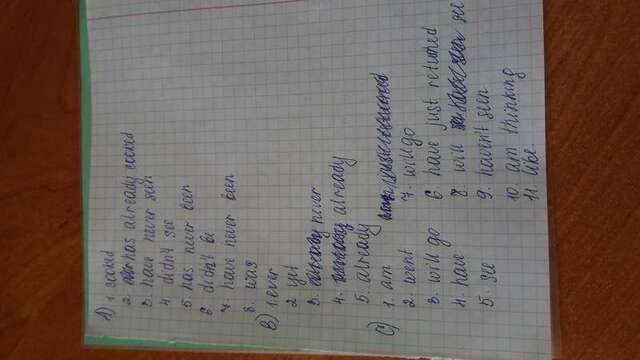 A) 1. cooked
2. has already cooked
3. have never seen
4. didn't see
5. has never been
6 didn't be
7. have never been
8. was
B) 1. ever
2 yet
3. never
4. already
5. already
C) 1. am
2. went
3. will go
4. have
5. see
7. will go
6 have just returned
8 will see
9. haven't seen
10. am thinking
11. like.